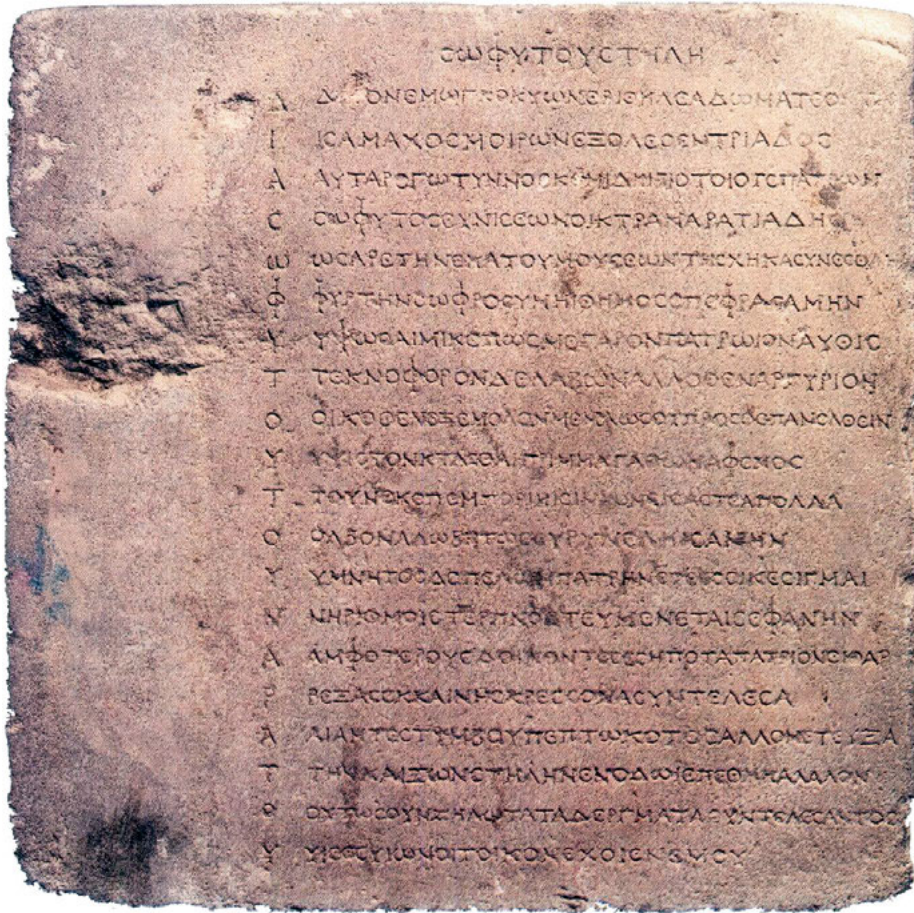 ϹΩΦΥΤΟΥϹΤΗΛΗ
Δ ΔΗΡΟΝΕΜΩΓΚΟΚΥΩΝΕΡΙΘΗΛΕΑΔΩΜΑΤΕΟΝΤΑ
Ι ΙϹΑΜΑΧΟϹΜΟΙΡΩΝΕΞΟΛΕϹΕΝΤΡΙΑΔΟϹ
Α ΑΥΤΑΡΕΓΩΤΥΝΝΟϹΚΟΜΙΔΗΙΒΙΟΤΟΙΟΤΕΠΑΤΡΩΝ
Ϲ ϹΩΦΥΤΟϹΕΥΝΙϹΕΩΝΟΙΚΤΡΑΝΑΡΑΤΙΑΔΗϹ
Ω ΩϹΑΡΕΤΗΝΕΚΑΤΟΥΜΟΥϹΕΩΝΤΗϹΧΗΚΑϹΥΝΕϹΘΛΗΙ
Φ ΦΥΡΤΗΝϹΩΦΡΟϹΥΝΗΙΘΗΜΟϹΕΠΕΦΡΑϹΑΜΗΝ
Υ ΥΨΩϹΑΙΜΙΚΕΠΩϹΜΕΓΑΡΟΝΠΑΤΡΩΙΟΝΑΥΘΙϹ
Τ ΤΕΚΝΟΦΟΡΟΝΔΕΛΑΒΩΝΑΛΛΟΘΕΝΑΡΓΥΡΙΟΝ
Ο ΟΙΚΟΘΕΝΕΞΕΜΟΛΟΝΜΕΜΑΩϹΟΥΠΡΟϹΘΕΠΑΝΕΛΘΕΙΝ
Υ ΥΨΙϹΤΟΝΚΤΑϹΘΑΙΠΡΙΜΜΑΓΑΘΩΝΑΦΕΝΟϹ
Τ ΤΟΥΝΕΚΕΠΕΜΠΟΡΙΗΙϹΙΝΙΩΝΕΙϹΑϹΤΕΑΠΟΛΛΑ
Ο ΟΛΒΟΝΑΛΩΒΗΤΩϹΕΥΡΥΝΕΛΗΙϹΑΜΗΝ
Υ ΥΜΝΗΤΟϹΔΕΠΕΛΩΝΠΑΤΡΗΝΕΤΕΕϹϹΙΝΕϹΙΓΜΑΙ
Ν ΝΗΡΙΘΜΟΙϹΤΕΡΠΝΟϹΤΕΥΜΕΝΕΤΑΙϹΕΦΑΝΗΝ
Α ΑΜΦΟΤΕΡΟΥϹΔΟΙΚΟΝΤΕϹΕϹΗΠΟΤΑΠΑΤΡΙΟΝΕΙΘΑΡ
Ρ ΡΕΞΑϹΕΚΚΑΙΝΗϹΚΡΕϹϹΟΝΑϹΥΝΤΕΛΕϹΑ
Α ΑΙΑΝΤΕϹΤΥΜΒΟΥΠΕΠΤΩΚΟΤΟϹΑΛΛΟΝΕΤΕΥΞΑ
Τ ΤΗΝΚΑΙΖΩΝϹΤΗΛΗΝΕΝΟΔΩΙΕΠΕΘΗΚΑΛΑΛΟΝ
Ο ΟΥΤΩϹΟΥΝΖΗΛΩΤΑΤΑΔΕΡΓΜΑΤΑϹΥΝΤΕΛΕϹΑΝΤΟϹ
Υ ΥΙΕΕϹΥΙΩΝΟΙΤΟΙΚΟΝΕΧΟΙΕΝΕΜΟΥ